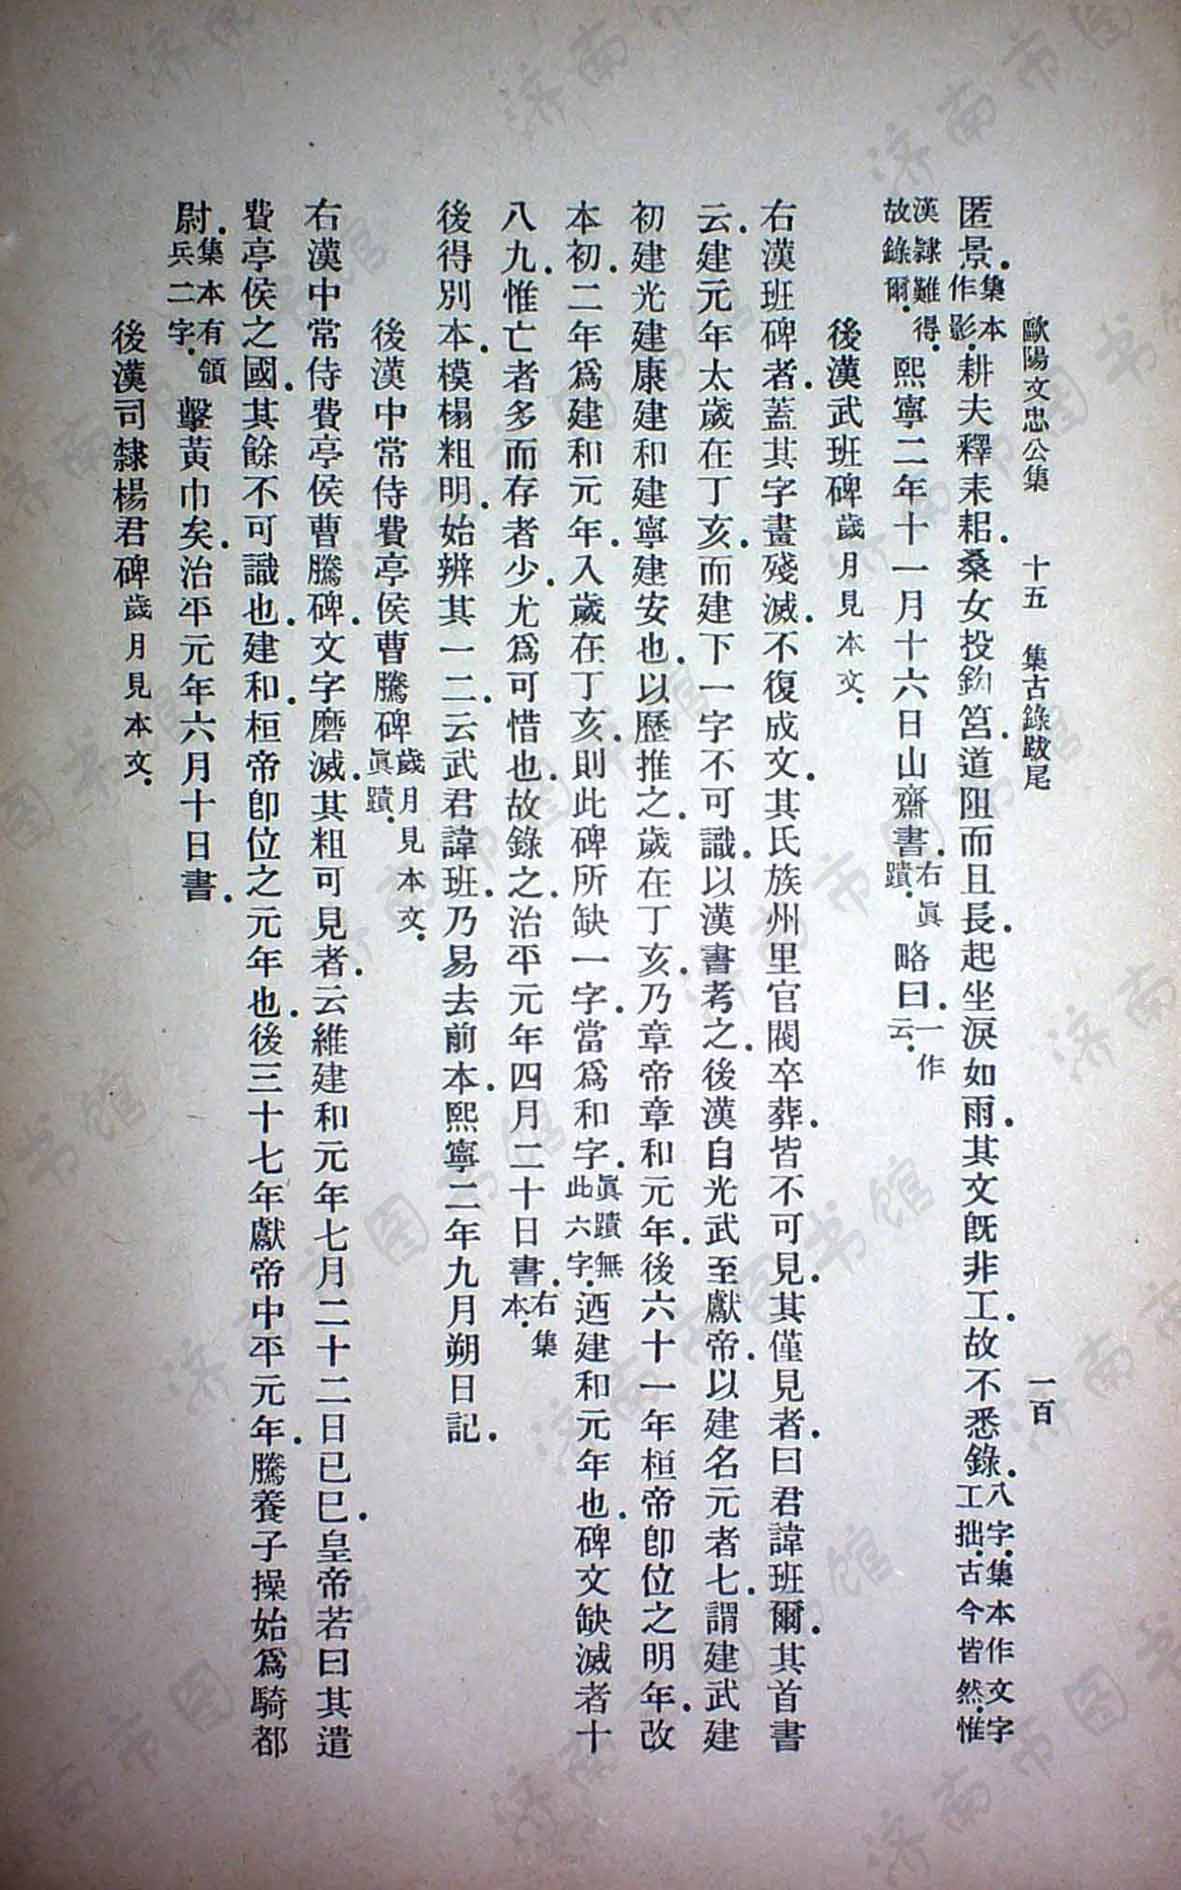 歐陽文忠公集　十五　集古錄跋尾　一百
匿景.集本作影.耕夫釋耒耜.桑女投鈎筥.道阻而且長.起坐淚如雨.其文旣非工.故不悉錄.八字.集本作文字工拙.古今皆然.惟
漢隸難得.故錄爾.熙寧二年十一月十六日山齋書.右眞蹟.略曰.一作云.
後漢武班碑歲月見本文.
右漢班碑者.蓋其字畫殘滅.不復成文.其氏族州里官閥卒葬.皆不可見.其僅見者.曰君諱班爾.其首書
云.建元年太歲在丁亥.而建下一字不可識.以漢書考之.後漢自光武至獻帝.以建名元者七.謂建武建
初建光建康建和建寧建安也.以歷推之.歲在丁亥.乃章帝章和元年.後六十一年桓帝卽位之明年.改
本初.二年爲建和元年.入歲在丁亥.則此碑所缺一字.當爲和字.眞蹟無此六字.迺建和元年也.碑文缺滅者十
八九.惟亡者多而存者少.尤爲可惜也.故錄之.治平元年四月二十日書.右集本.
後得別本.模榻粗明.始辨其一二.云武君諱班.乃易去前本.熙寧二年九月朔日記.
後漢中常侍費亭侯曹騰碑歲月見本文.眞蹟.
右漢中常侍費亭侯曹騰碑.文字磨滅.其粗可見者.云維建和元年七月二十二日已巳.皇帝若曰其遣
費亭侯之國.其餘不可識也.建和.桓帝卽位之元年也.後三十七年獻帝中平元年.騰養子操始爲騎都
尉.集本有領兵二字.擊黃巾矣.治平元年六月十日書.
後漢司隸楊君碑歲月見本文.
济南市图书馆